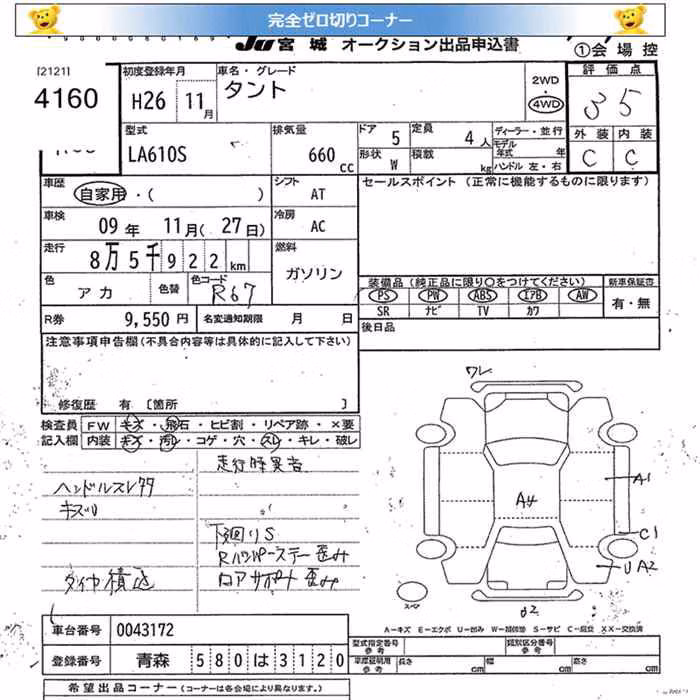 完全ゼロ切りコーナー
JU 宮城 オークション出品申込書
①会場控
[2121]
4160
初度登録年月
H26 11月
車名・グレード
タント
2WD
・
4WD
評価点
3.5
型式
LA610S
排気量
660 cc
ドア 5
定員 4人
形状 W
積載 kg
ディーラー・並行
モデル年式 年
ハンドル 左・右
外装 内装
C C
車歴 自家用・( )
シフト AT
セールスポイント (正常に機能するものに限ります)
車検 09年 11月(27日)
冷房 AC
走行 8万5千922km
燃料 ガソリン
色 アカ
色替
色コード R67
装備品 (純正品に限り○をつけてください)
新車保証書
PS PW ABS エアB AW
SR ナビ TV カワ
有・無
R券 9,550円
名変通知期限 月 日
後日品
注意事項申告欄(不具合内容等は具体的に記入して下さい)
修復歴 有 [箇所 ]
検査員記入欄
FW キズ・飛石・ヒビ割・リペア跡・×要
内装 キズ・汚レ・コゲ・穴・スレ・キレ・破レ
ハンドルスレ
キズU
タイヤ積込
下廻りS
Rバンパーステー歪み
ロアサポート歪み
ワレ
A1
A4
C1
UA2
スペア
A-キズ E-エクボ U-凹み W-補修跡 S-サビ C-腐食 XX-交換済
車台番号 0043172
登録番号 青森 580 は 3120
型式指定番号 参考
類別区分番号 参考
車庫証明用 参考
長さ cm
幅 cm
高さ cm
希望出品コーナー (コーナーは各会場により異なります。)